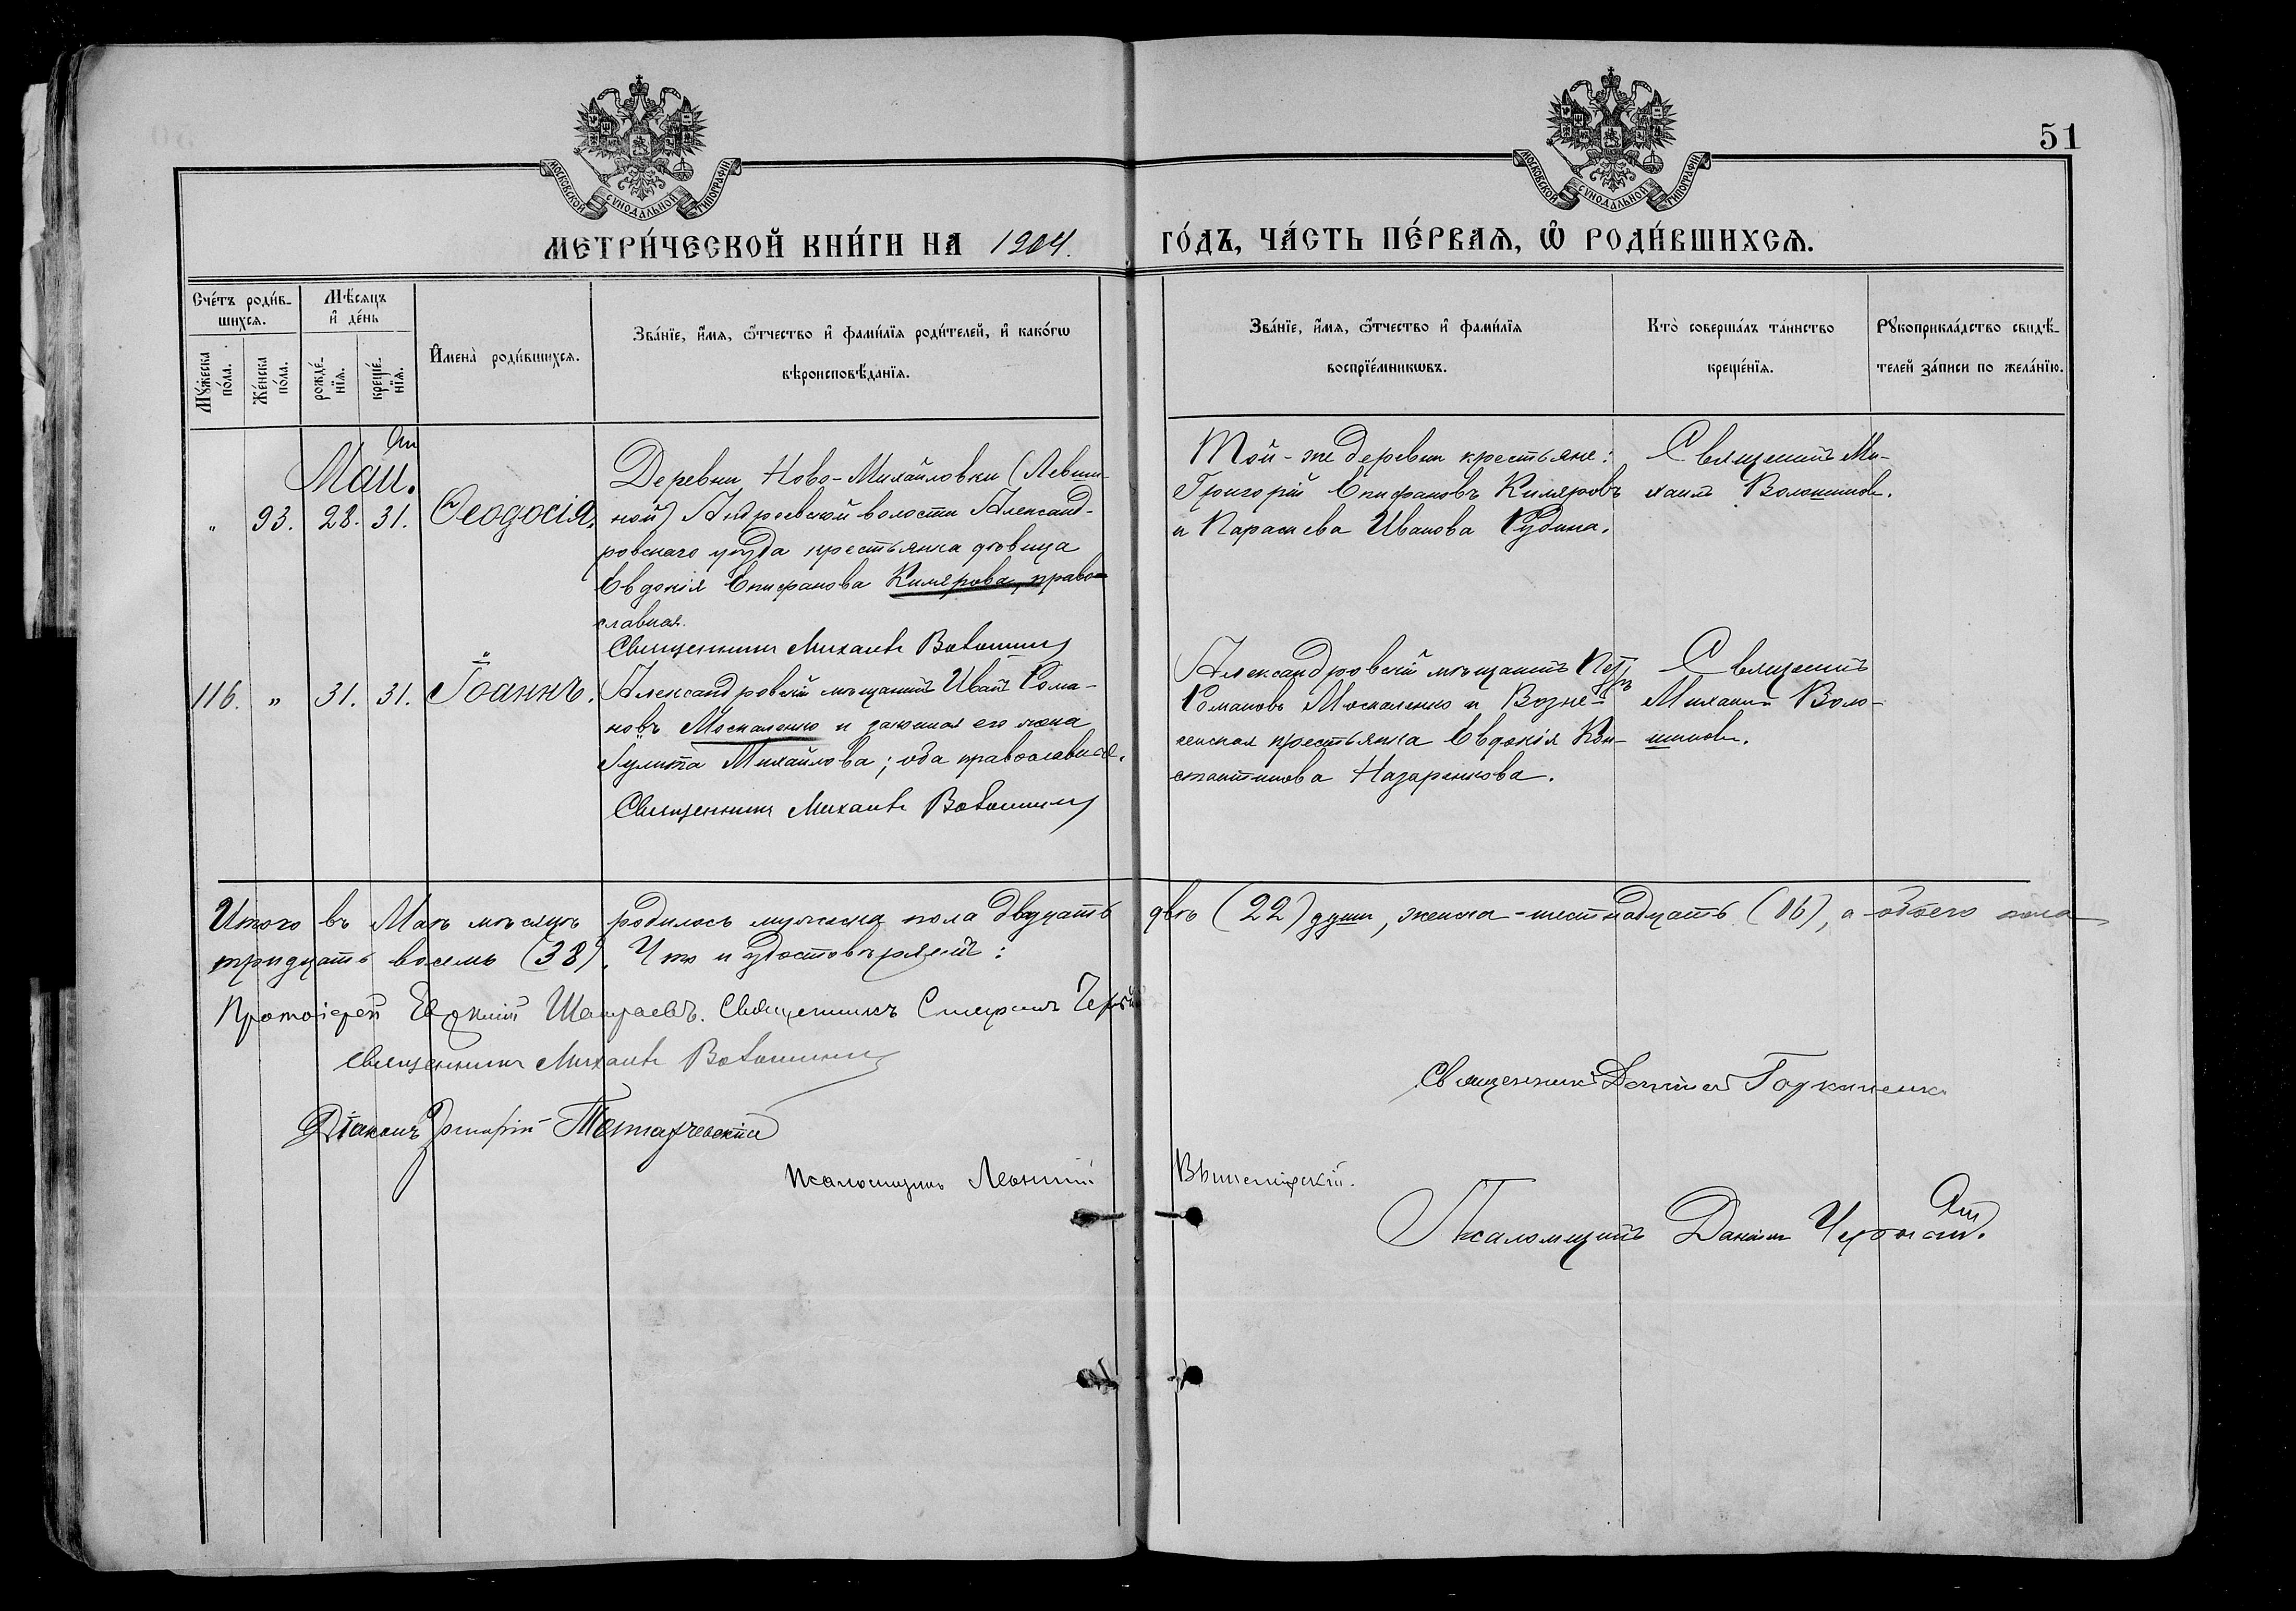 51
МОСКОВСКОЙ СѴНОДАЛЬНОЙ ТИПОГРАФІИ
МОСКОВСКОЙ СѴНОДАЛЬНОЙ ТИПОГРАФІИ
МЕТРИ́ЧЕСКОЙ КНИ́ГИ НА 1904.
ГО́ДЪ, ЧА́СТЬ ПЕ́РВАѦ, Ѡ҆ РОДИ́ВШИХСѦ.
Сче́тъ роди́в-
шихсѧ.
Мꙋ́жеска по́ла.
Же́нска по́ла.
Мѣ́сѧцъ и҆ де́нь
рожде́-
нїѧ.
креще́-
нїѧ.
И҆мена̀ роди́вшихсѧ.
Зва́нїе, и҆́мѧ, ѻ҆́тчество и҆ фами́лїѧ роди́телей, и҆ како́гѡ
вѣроисповѣ́данїѧ.
Зва́нїе, и҆́мѧ, ѻ҆́тчество и҆ фами́лїѧ
воспрїе́мникѡвъ.
Кто̀ соверша́лъ та́инство
креще́нїѧ.
Рꙋкоприкла́дство свидѣ́-
телей за́писи по жела́нїю.
Май.
" 93. 28. 31. Ѳеодосія.
Деревни Ново-Михайловки (Левши-
ной) Андреевской волости Александ-
ровскаго уѣзда крестьянка дѣвица
Евдокія Епифанова Кимярова, право-
славная.
Священникъ Михаилъ Волошинъ
Той-же деревни крестьяне:
Григорій Епифановъ Кимяровъ
и Параскева Иванова Рудина.
Священникъ Ми-
хаилъ Волошиновъ.
116. " 31. 31. Іоаннъ.
Александровскій мѣщанинъ Иванъ Рома-
новъ Москаленко и законная его жена
Іулита Михайлова; оба православные.
Священникъ Михаилъ Волошинъ
Александровскій мѣщанинъ Петръ
Романовъ Москаленко и Возне-
сенская крестьянка Евдокія Кон-
стантинова Назаренкова.
Священникъ
Михаилъ Воло-
шиновъ.
Итого въ Маѣ мѣсяцѣ родилось мужеска пола двадцать двѣ (22) души, женска - шестнадцать (16), а обоего пола
тридцать восемь (38). Что и удостовѣряемъ:
Протоіерей Евдокимъ Шамраевъ. Священникъ Стефанъ
Священникъ Михаилъ Волошинъ
Священникъ Даніилъ
Діаконъ Григорій
Псаломщикъ Леонтій
Псаломщикъ Даніилъ